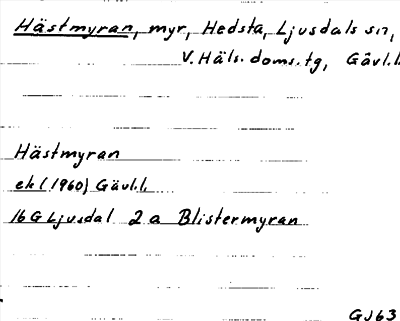 Hästmyran, myr, Hedsta, Ljusdals sn,
V. Häls. doms.tg, Gävl.l.
Hästmyran
ek (1960) Gävl.l.
16 G Ljusdal 2 a Blistermyran
GJ63